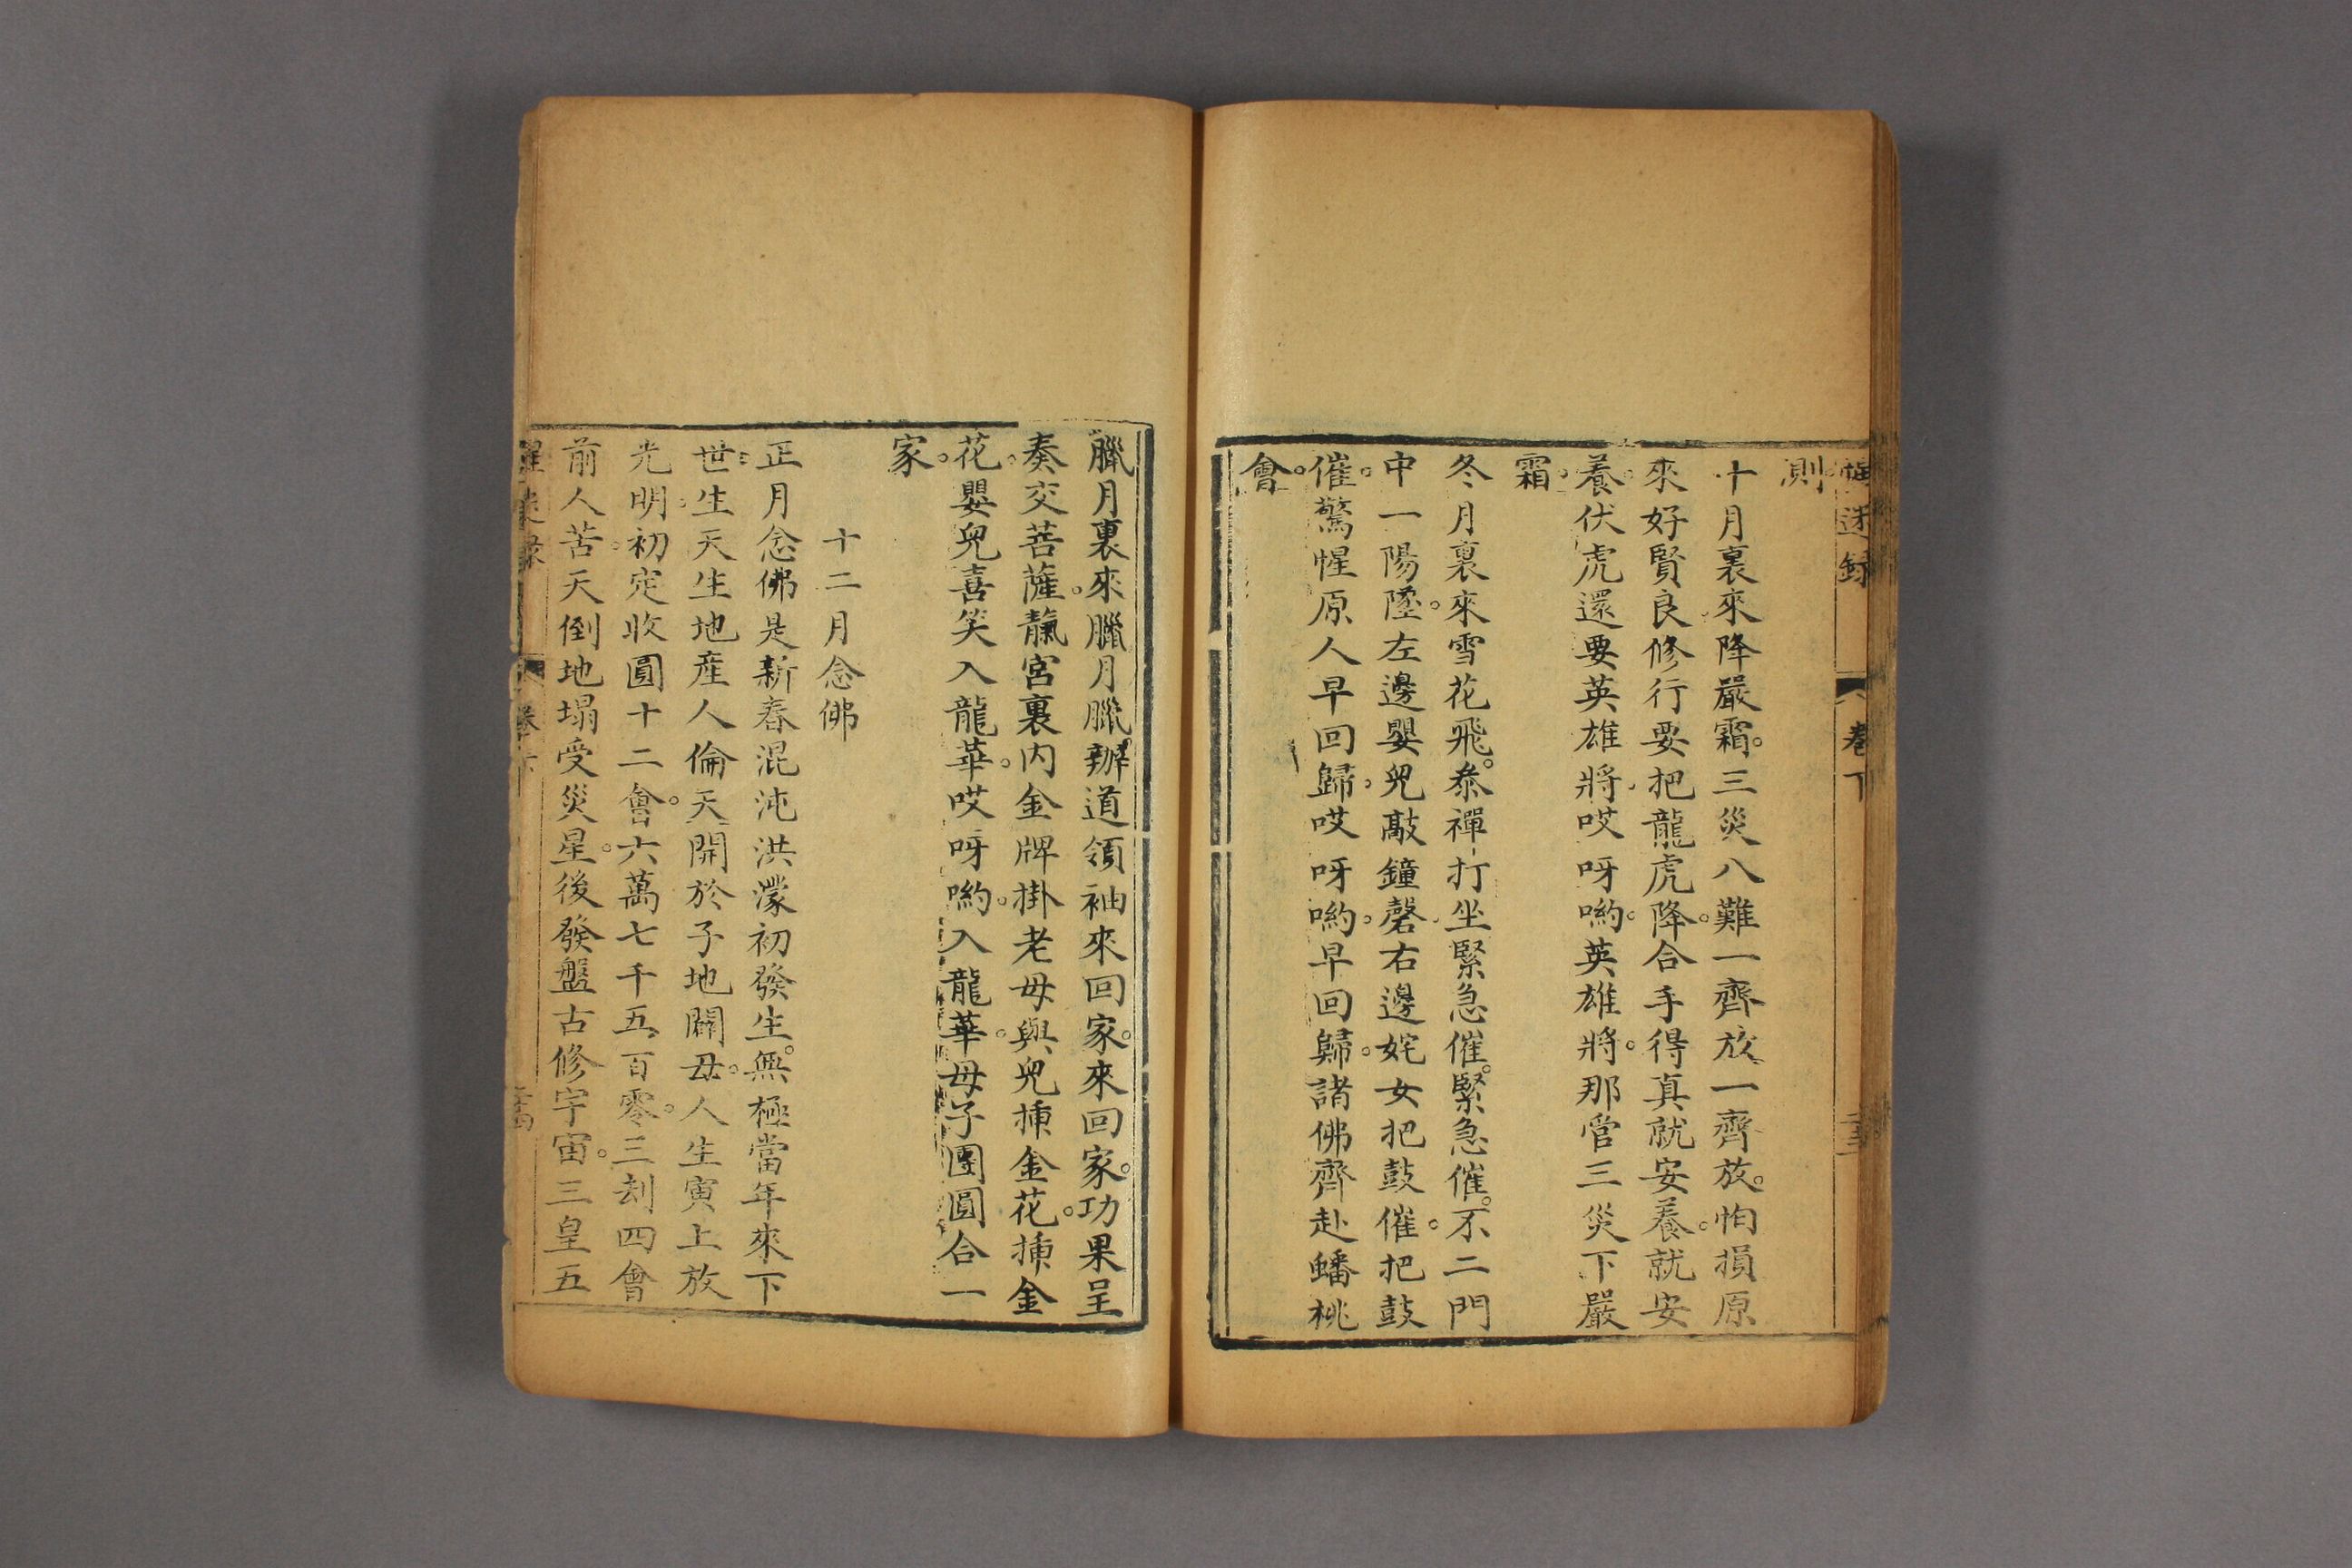 惺迷録　卷下　二十三
測。
十月裏來降嚴霜。三災八難一齊放一齊放。怕損原
來好賢良修行要把龍虎降。合手得真就安養。就安
養。伏虎還要英雄將哎呀喲。英雄將。那管三災下嚴
霜。
冬月裏來雪花飛。叅禪打坐緊急催。緊急催。不二門
中一陽墬。左邊嬰兒敲鐘磬右邊姹女把鼓催。把鼓
催。驚惺原人早回歸。哎呀喲。早回歸。諸佛齊赴蟠桃
會。
臘月裏來臘月臘。辦道領袖來回家。來回家。功果呈
奏交菩薩。靝宮裏内金牌掛老母與兒揷金花。揷金
花。嬰兒喜笑入龍華。哎呀喲。入龍華。母子團圓合一
家。
十二月念佛
正月念佛是新春混沌洪濛初發生。無極當年來下
世。生天生地産人倫天開於子地闢丑。人生寅上放
光明。初定收圓十二會。六萬七千五百零。三刦四會
前人苦。天倒地塌受災星。後發盤古修宇宙。三皇五